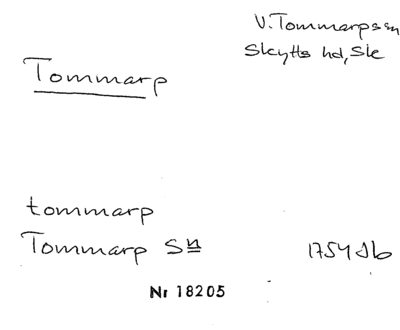 V. Tommarps sn
Skytts hd, Sk
Tommarp
tommarp
Tommarp Sn
1754 Jb
Nr 18205